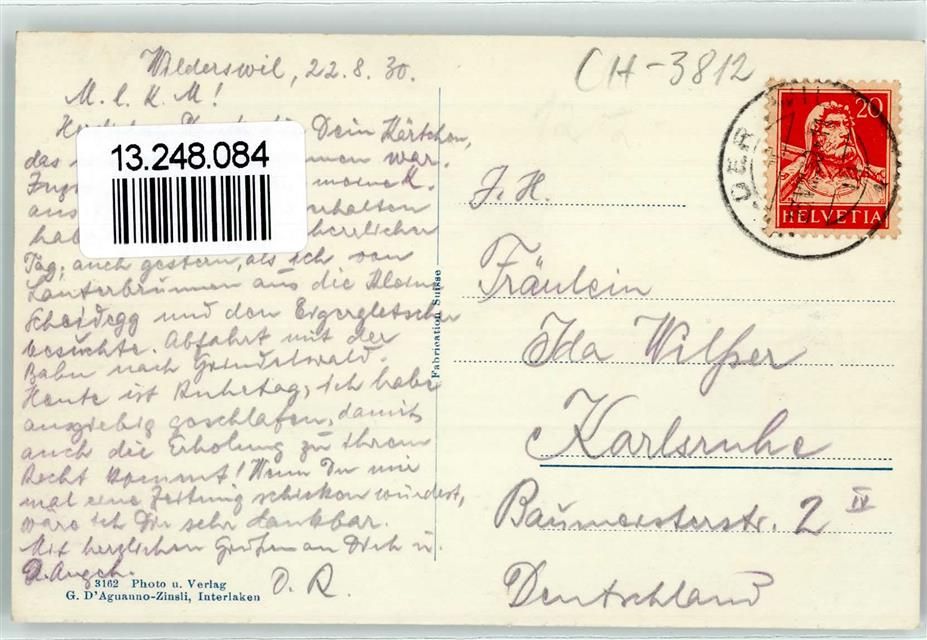 Wilderswil, 22.8.30.
CH-3812
M. l. K. M!
Dein Kärtchen,
das war.
13.248.084
aus
herrlicher
Tag, auch gestern, als ich von
Lauterbrunnen aus die Kleine
Scheidegg und den Eigergletscher
besuchte. Abfahrt mit der
Bahn nach Grindelwald.
Heute ist Ruhetag, ich habe
ausgiebig geschlafen, damit
auch die Erholung zu ihrem
Recht kommt! Wenn Du mir
mal eine Zeitung schicken würdest,
wäre ich Dir sehr dankbar.
Mit herzlichen Grüßen an Dich u.
D. Angeh.
O. R.
3162 Photo u. Verlag
G. D'Aguanno-Zinsli, Interlaken
Fabrication Suisse
20
HELVETIA
J. H.
Fräulein
Ida
Karlsruhe
Baumeisterstr. 2 IV
Deutschland